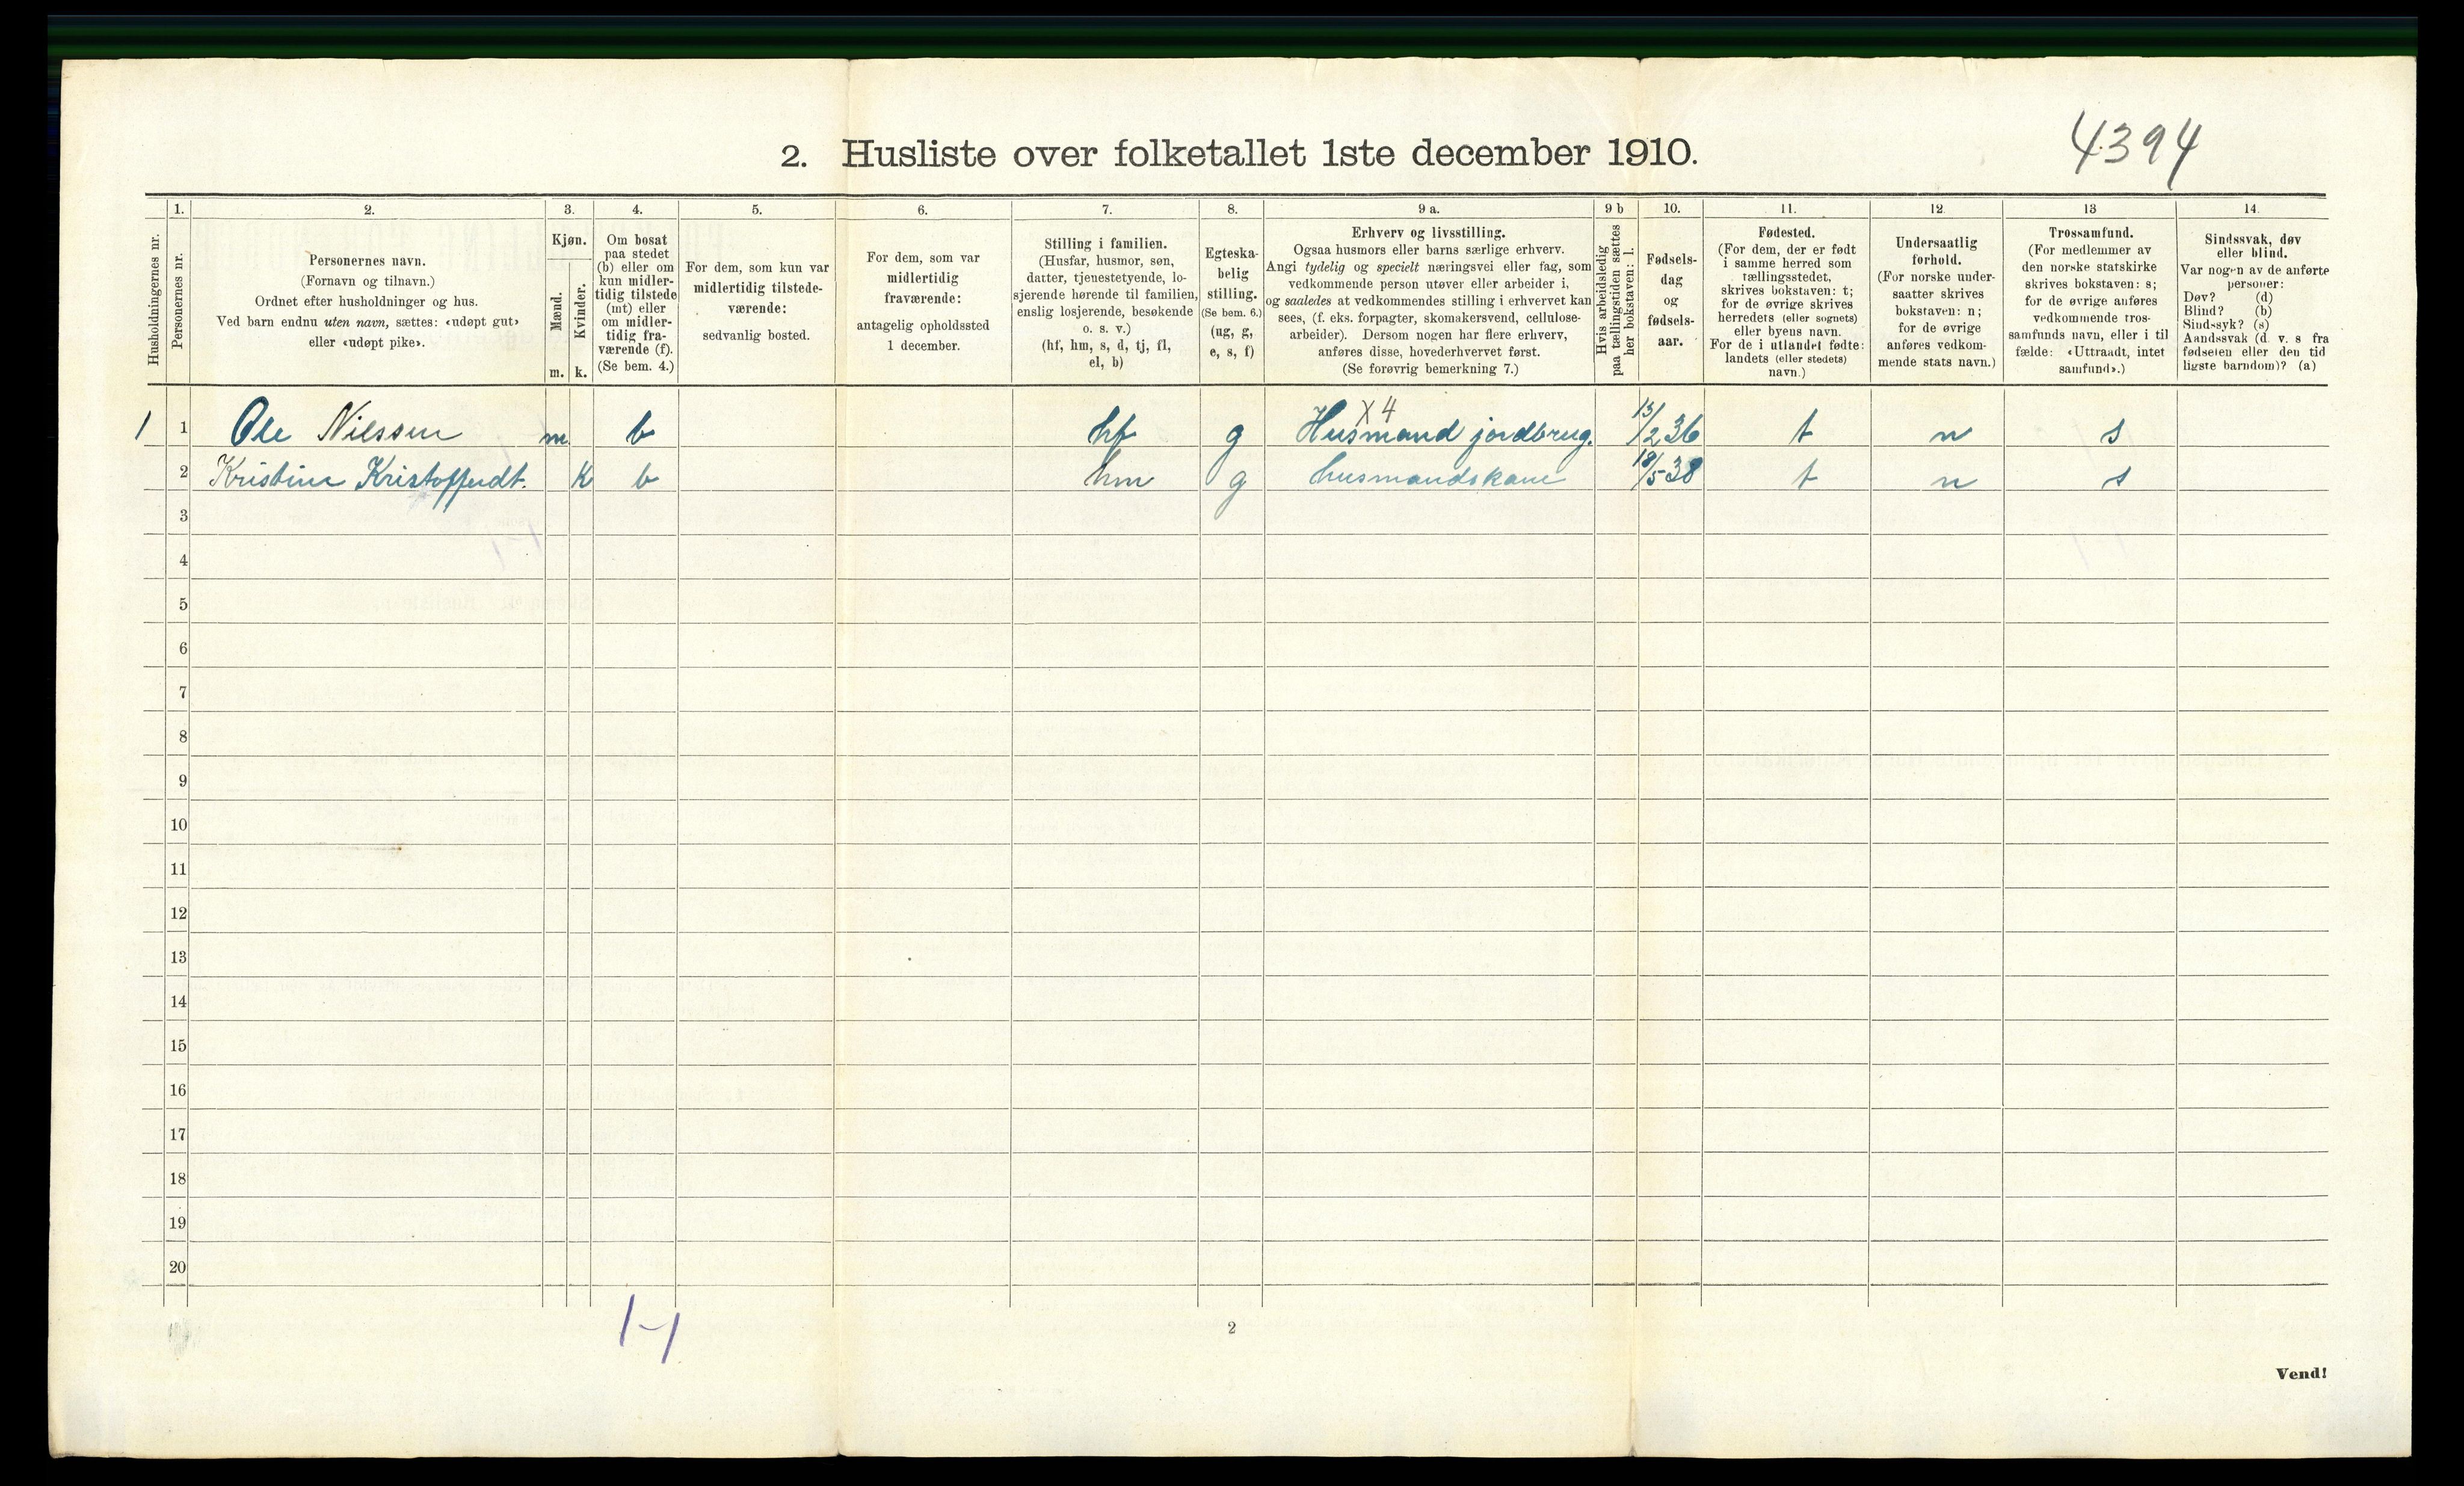 4394
2. Husliste over folketallet 1ste december 1910.
1. 2. 3. 4. 5. 6. 7. 8. 9 a. 9 b 10. 11. 12. 13 14.
Husholdningernes nr.
Personernes nr.
Personernes navn.
(Fornavn og tilnavn.)
Ordnet efter husholdninger og hus.
Ved barn endnu uten navn, sættes: «udøpt gut»
eller «udøpt pike».
Kjøn.
Mænd.
Kvinder.
m. k.
Om bosat
paa stedet
(b) eller om
kun midler-
tidig tilstede
(mt) eller
om midler-
tidig fra-
værende (f).
(Se bem. 4.)
For dem, som kun var
midlertidig tilstede-
værende:
sedvanlig bosted.
For dem, som var
midlertidig
fraværende:
antagelig opholdssted
1 december.
Stilling i familien.
(Husfar, husmor, søn,
datter, tjenestetyende, lo-
sjerende hørende til familien,
enslig losjerende, besøkende
o. s. v.)
(hf, hm, s, d, tj, fl,
el, b)
Egteska-
belig
stilling.
(Se bem. 6.)
(ug, g,
e, s, f)
Erhverv og livsstilling.
Ogsaa husmors eller barns særlige erhverv.
Angi tydelig og specielt næringsvei eller fag, som
vedkommende person utøver eller arbeider i,
og saaledes at vedkommendes stilling i erhvervet kan
sees, (f. eks. forpagter, skomakersvend, cellulose-
arbeider). Dersom nogen har flere erhverv,
anføres disse, hovederhvervet først.
(Se forøvrig bemerkning 7.)
Hvis arbeidsledig
paa tællingstiden sættes
her bokstaven: l.
Fødsels-
dag
og
fødsels-
aar.
Fødested.
(For dem, der er født
i samme herred som
tællingsstedet,
skrives bokstaven: t;
for de øvrige skrives
herredets (eller sognets)
eller byens navn.
For de i utlandet fødte:
landets (eller stedets)
navn.)
Undersaatlig
forhold.
(For norske under-
saatter skrives
bokstaven: n;
for de øvrige
anføres vedkom-
mende stats navn.)
Trossamfund.
(For medlemmer av
den norske statskirke
skrives bokstaven: s;
for de øvrige anføres
vedkommende tros-
samfunds navn, eller i til
fælde: «Uttraadt, intet
samfund».)
Sindssvak, døv
eller blind.
Var nogen av de anførte
personer:
Døv? (d)
Blind? (b)
Sindssyk? (s)
Aandssvak (d. v. s fra
fødselen eller den tid
ligste barndom)? (a)
X 4
1 1 Ole Nilssen m. b hf g Husmand jordbrug. 13/2 36 t n s
2 Kristine Kristoffersdt. k b hm g husmandskone 18/5 38 t n s
3
4
5
6
7
8
9
10
11
12
13
14
15
16
17
18
19
20
1-1
2
Vend!